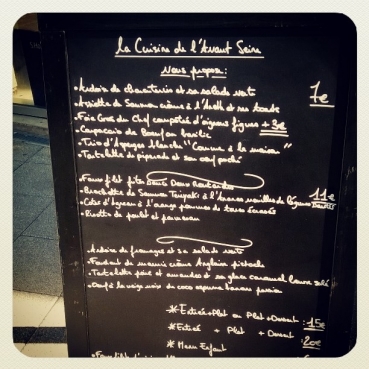 La Cuisine de l'Avant Seine
Vous propose:
•Ardoise de charcuterie et sa salade verte 7e
•Assiette de Saumon crème à l'Aneth et ses toasts
•Foie Gras du Chef compotée d'oignons figues +3e
•Carpaccio de Boeuf au basilic
•Trio d'Asperges blanche "Comme à la maison"
•Tartelette de piperade et son oeuf poché
•Faux filet frites Sauce
•Brochette de Saumon Teriyaki à l'Ananas nouilles de légumes 11e
•Côtes d'Agneau à l'orange pommes de terre écrasés
•Risotto de poulet et parmesan
Ardoise de fromages et sa salade verte
•Fondant de marron crème Anglaise pistache
•Tartelette poire et amandes et sa glace caramel beurre salé
•Soupe banane
*Entrée+Plat ou Plat+Dessert :15e
*Entrée + Plat + Dessert :20e
*Menu Enfant